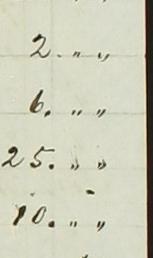 2. " "
6. " "
25. " "
10. " "